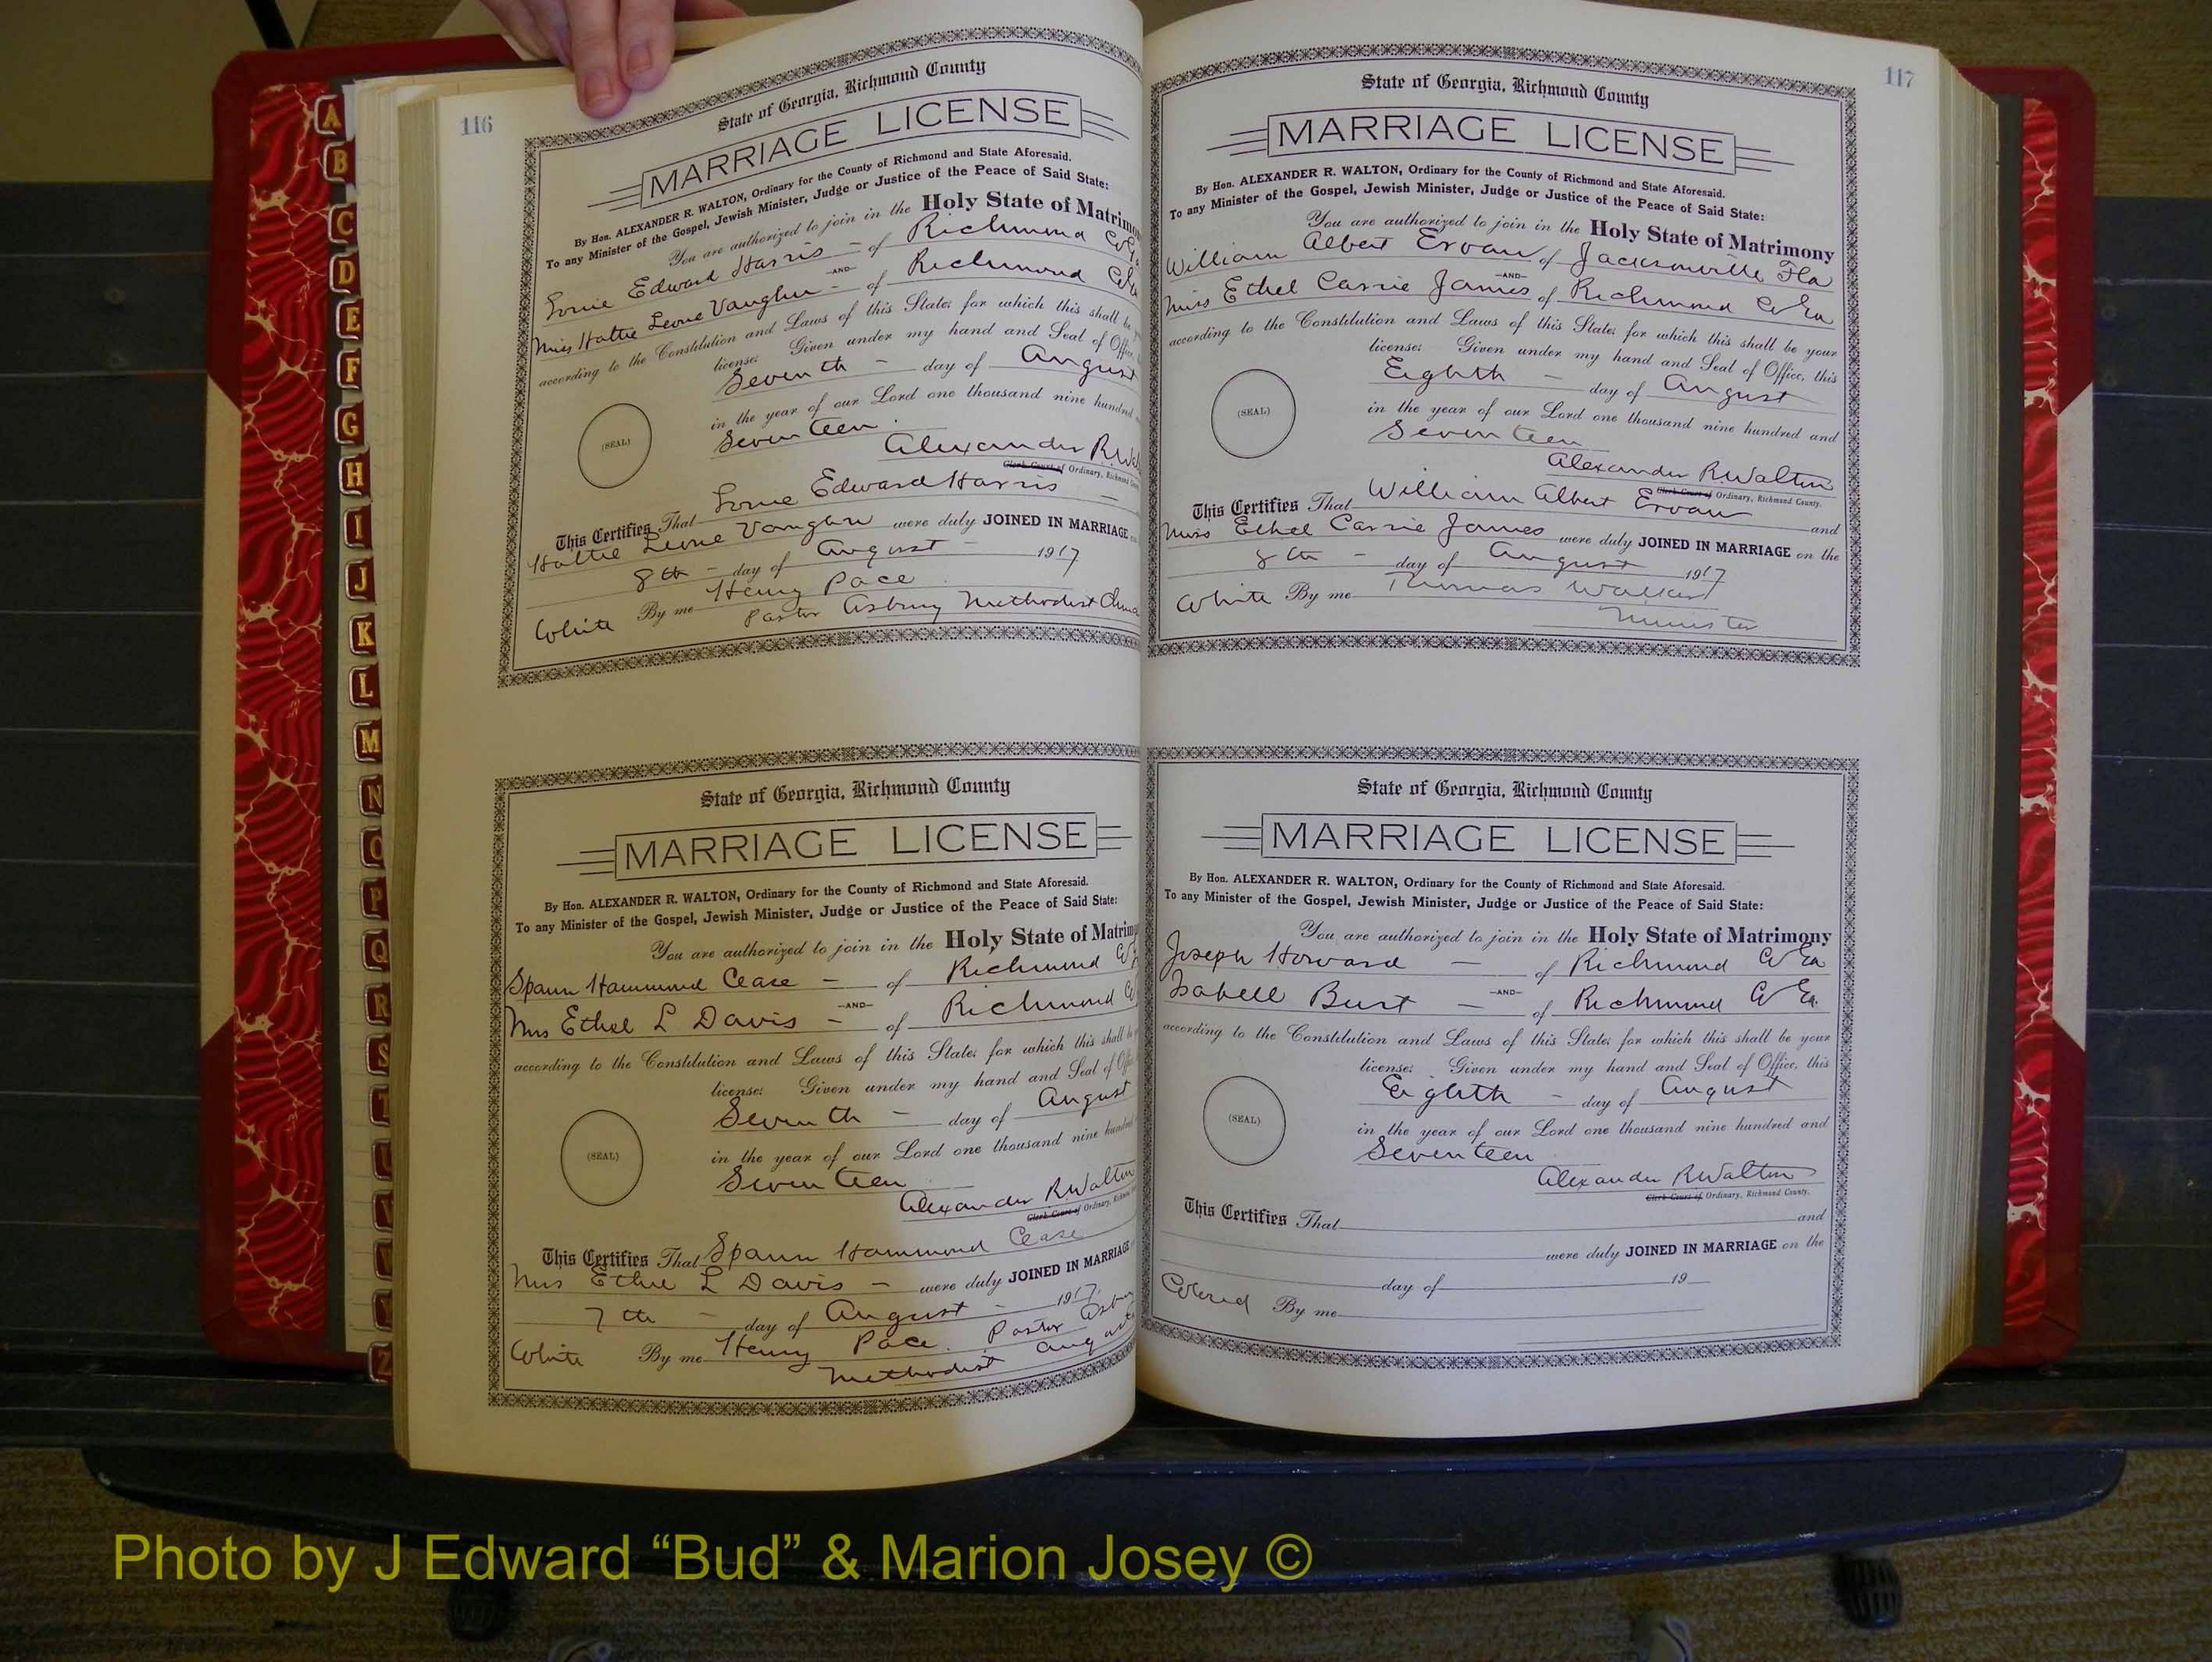 116
State of Georgia, Richmond County
MARRIAGE LICENSE
By Hon. ALEXANDER R. WALTON, Ordinary for the County of Richmond and State Aforesaid.
To any Minister of the Gospel, Jewish Minister, Judge or Justice of the Peace of Said State:
You are authorized to join in the Holy State of Matrimo
Edward Harris - of Richmond Co
-AND-
Miss Hattie Leone Vaughn - of Richmond Co
according to the Constitution and Laws of this State; for which this shall be
license: Given under my hand and Seal of Office,
Seventh - day of August
(SEAL)
in the year of our Lord one thousand nine hundred
Seventeen
Alexander R Wal
Clerk Court of Ordinary, Richmond County
This Certifies That Edward Harris
Hattie Leone Vaughn were duly JOINED IN MARRIAGE
8th - day of August - 1917
White By me Henry Pace
Pastor Asbury Methodist
State of Georgia, Richmond County
MARRIAGE LICENSE
By Hon. ALEXANDER R. WALTON, Ordinary for the County of Richmond and State Aforesaid.
To any Minister of the Gospel, Jewish Minister, Judge or Justice of the Peace of Said State:
You are authorized to join in the Holy State of Matrim
Spann Hammond Cease - of Richmond
-AND-
Mrs Ethel L Davis - of Richmond
according to the Constitution and Laws of this State; for which this shall be
license: Given under my hand and Seal of
Seventh - day of August
(SEAL)
in the year of our Lord one thousand nine hundred
Seventeen
Alexander R Walton
Clerk Court of Ordinary, Richmond
This Certifies That Spann Hammond Cease
Mrs L Davis - were duly JOINED IN MARRIAGE
7th - day of August - 1917
White By me Henry Pace. Pastor
Methodist
117
State of Georgia, Richmond County
MARRIAGE LICENSE
By Hon. ALEXANDER R. WALTON, Ordinary for the County of Richmond and State Aforesaid.
To any Minister of the Gospel, Jewish Minister, Judge or Justice of the Peace of Said State:
You are authorized to join in the Holy State of Matrimony
William Albert Ervan of Jacksonville Fla
-AND-
Miss Ethel Carrie James of Richmond Co Ga
according to the Constitution and Laws of this State; for which this shall be your
license: Given under my hand and Seal of Office, this
Eighth - day of August
(SEAL)
in the year of our Lord one thousand nine hundred and
Seventeen
Alexander R Walton
Clerk Court of Ordinary, Richmond County.
This Certifies That William Albert Ervan and
Miss Ethel Carrie James were duly JOINED IN MARRIAGE on the
8th - day of August 1917
White By me Thomas Walker
Minister
State of Georgia, Richmond County
MARRIAGE LICENSE
By Hon. ALEXANDER R. WALTON, Ordinary for the County of Richmond and State Aforesaid.
To any Minister of the Gospel, Jewish Minister, Judge or Justice of the Peace of Said State:
You are authorized to join in the Holy State of Matrimony
Joseph Howard - of Richmond Co Ga
-AND-
Isabell Burt - of Richmond Co Ga
according to the Constitution and Laws of this State; for which this shall be your
license: Given under my hand and Seal of Office, this
Eighth - day of August
(SEAL)
in the year of our Lord one thousand nine hundred and
Seventeen
Alexander R Walton
Clerk Court of Ordinary, Richmond County.
This Certifies That and
were duly JOINED IN MARRIAGE on the
day of 19
Colored By me
A
B
C
D
E
F
G
H
I
J
K
L
M
N
O
P
Q
R
S
Z
Photo by J Edward “Bud” & Marion Josey ©